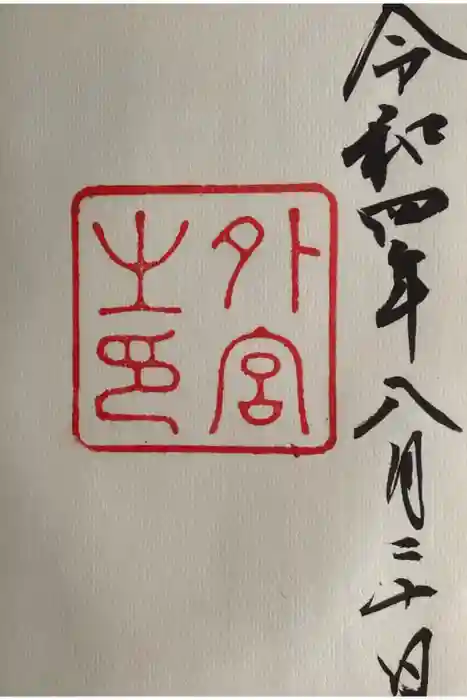 令和四年八月二十日
外宮
之印